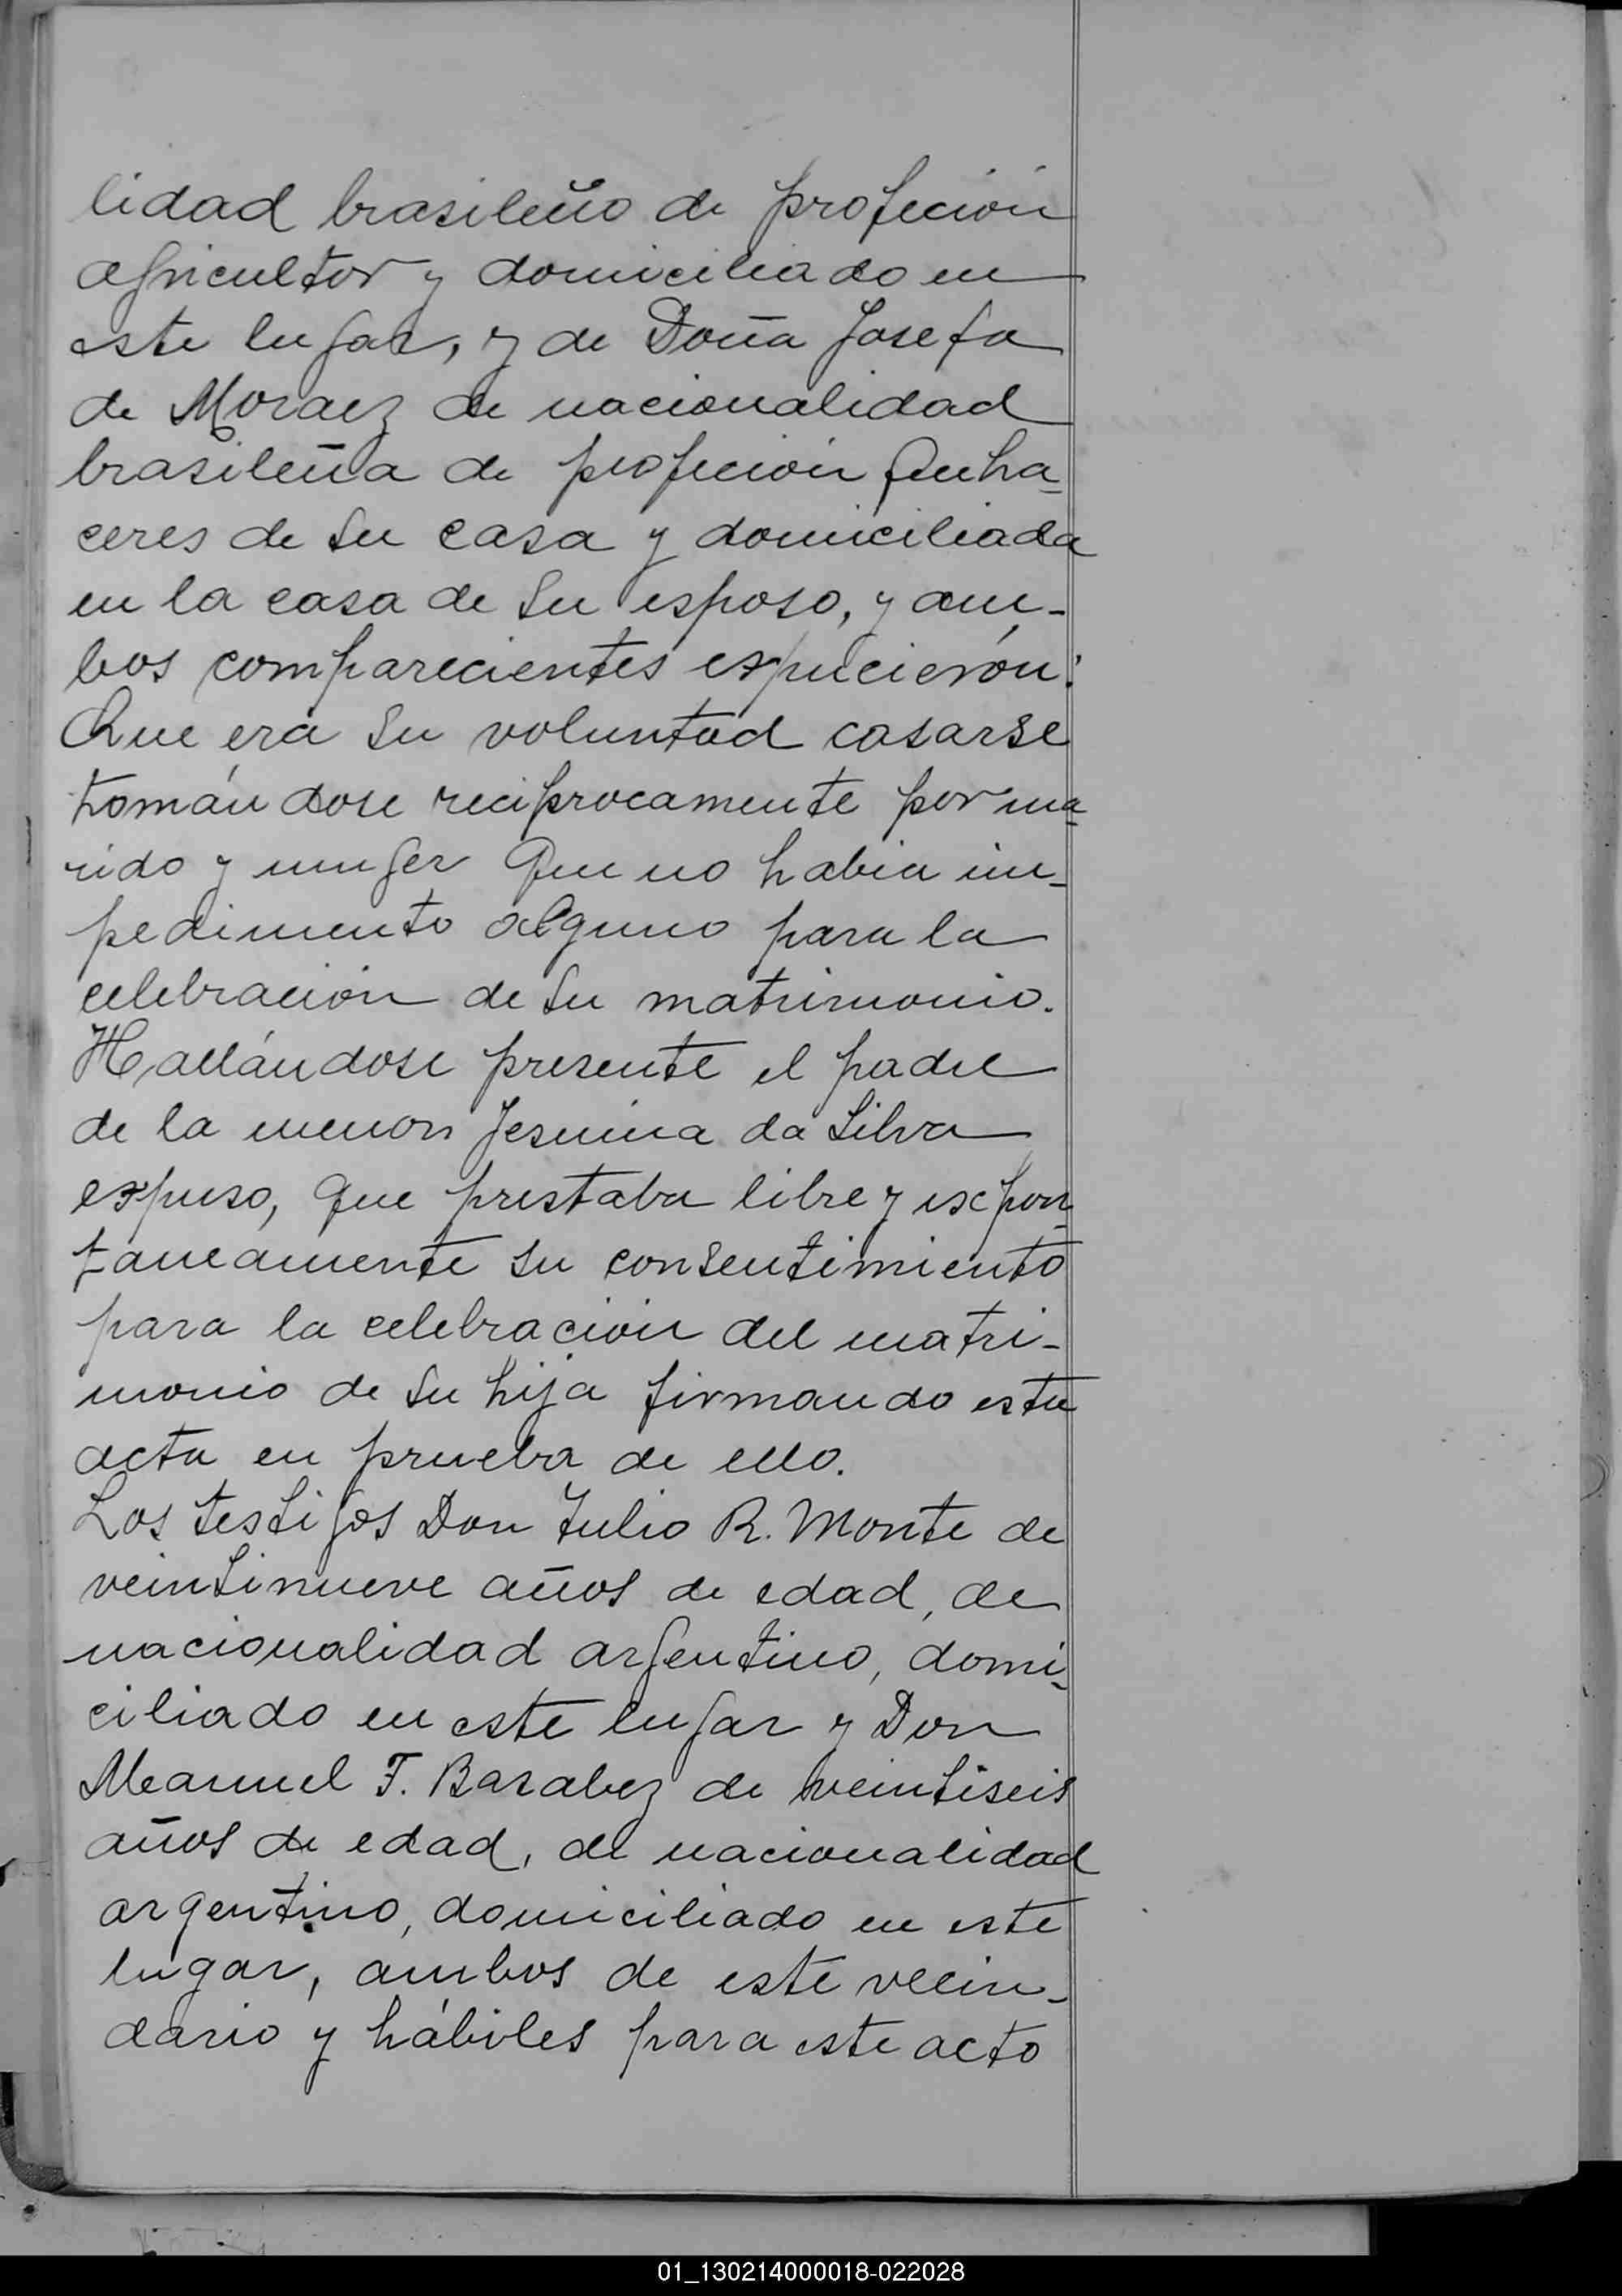 lidad brasileño de profeción
agricultor y domiciliado en
este lugar, y de Doña Josefa
de Moraez de nacionalidad
brasileña de profeción Queha-
ceres de su casa y domiciliada
en la casa de su esposo, y am-
bos comparecientes expucierón:
Que era su voluntad casarse
tomándose reciprocamente por ma-
rido y muger Que no habia im-
pedimento alguno para la
celebración de su matrimonio.
Hallándose presente el padre
de la menor Jesmina da Silva
expuso, que prestaba libre y expon-
taneamente su consentimiento
para la celebración del matri-
monio de su hija firmando esta
acta en prueba de ello.
Los testigos Don Julio R. Monte de
veintinueve años de edad, de
nacionalidad argentino, domi-
ciliado en este lugar y Don
Manuel F. Barabez de veintiseis
años de edad, de nacionalidad
argentino, domiciliado en este
lugar, ambos de este vecin-
dario y hábiles para este acto
01_130214000018-022028